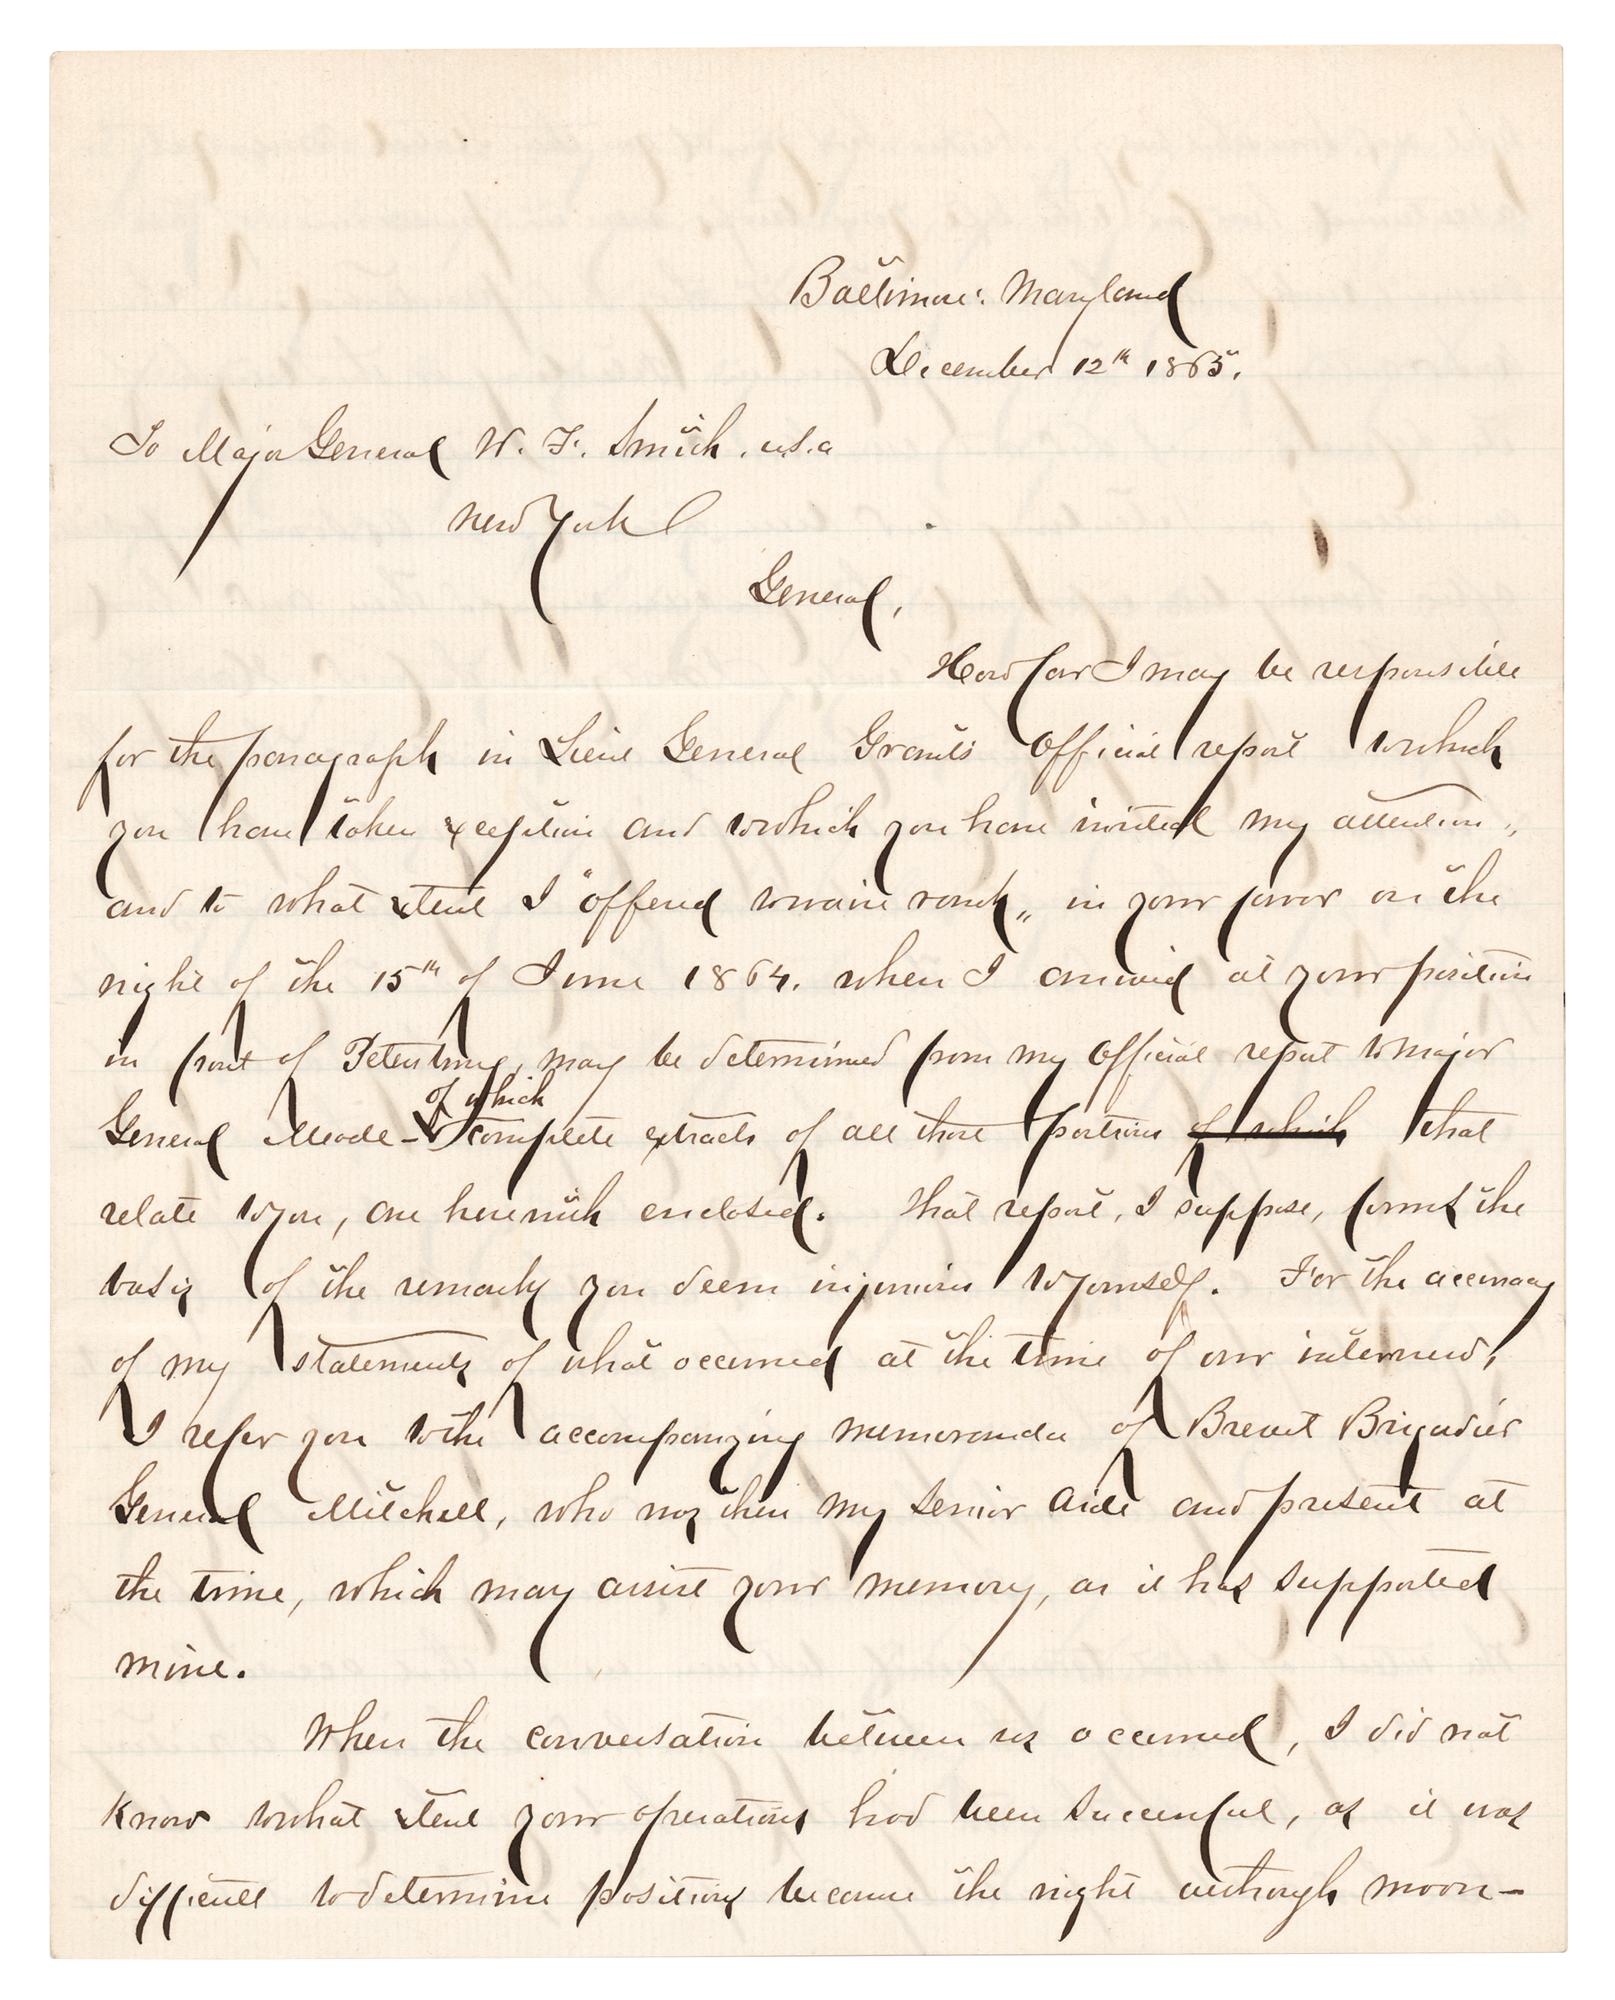 Baltimore: Maryland
December 12th 1865.
To Major General W. F. Smith. U.S.A
New York
General,
How far I may be responsible
for the paragraph in Lieut General Grant's Official report to which
you have taken exception and to which you have invited my attention,
and to what extent I "offered to waive rank" in your favor on the
night of the 15th of June 1864. when I arrived at your position
in front of Petersburg, may be determined from my Official report to Major
General Meade - of which complete extracts of all those portions of which that
relate to you, are herewith enclosed. That report, I suppose, forms the
basis of the remarks you deem injurious to yourself. For the accuracy
of my statements of what occurred at the time of our interview,
I refer you to the accompanying memoranda of Brevet Brigadier
General Mitchell, who was then my Senior Aide and present at
the time, which may assist your memory, as it has supported
mine.
When the conversation between us occurred, I did not
know to what extent your operations had been successful, as it was
difficult to determine positions because the night although moon-